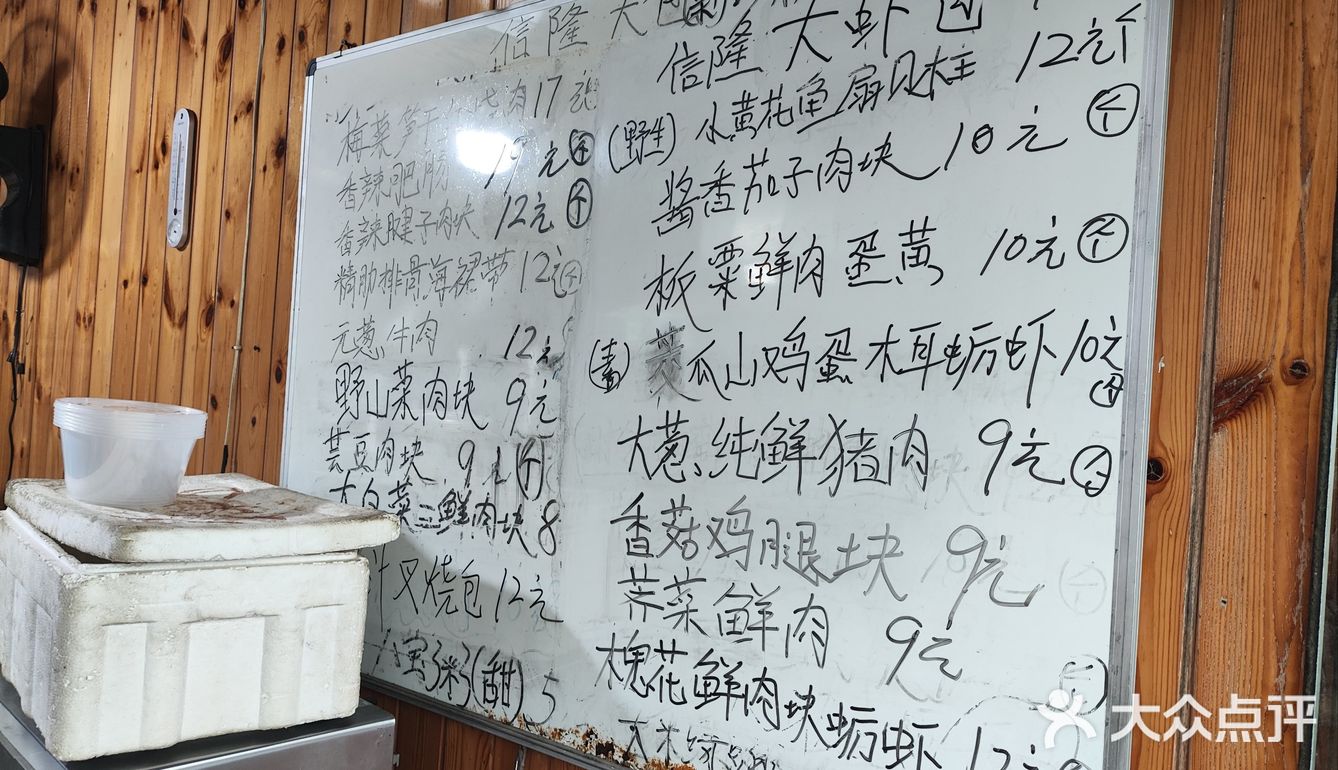 信隆大包
梅菜笋干 肉17元
香辣肥肠 19元个
香辣腱子肉块 12元个
精肋排骨海裙带 12元个
元葱牛肉 12元
野山菜肉块 9元
芸豆肉块 9元个
大白菜三鲜肉块 8
叉烧包 12元
八宝粥(甜) 5
信隆大虾包
(野生)小黄花鱼扇贝柱 12元个
酱香茄子肉块 10元个
板栗鲜肉蛋黄 10元个
茭瓜山鸡蛋木耳蛎虾 10元
大葱纯鲜猪肉 9元个
香菇鸡腿块 9元
荠菜鲜肉 9元
槐花鲜肉块蛎虾 12元
大众点评